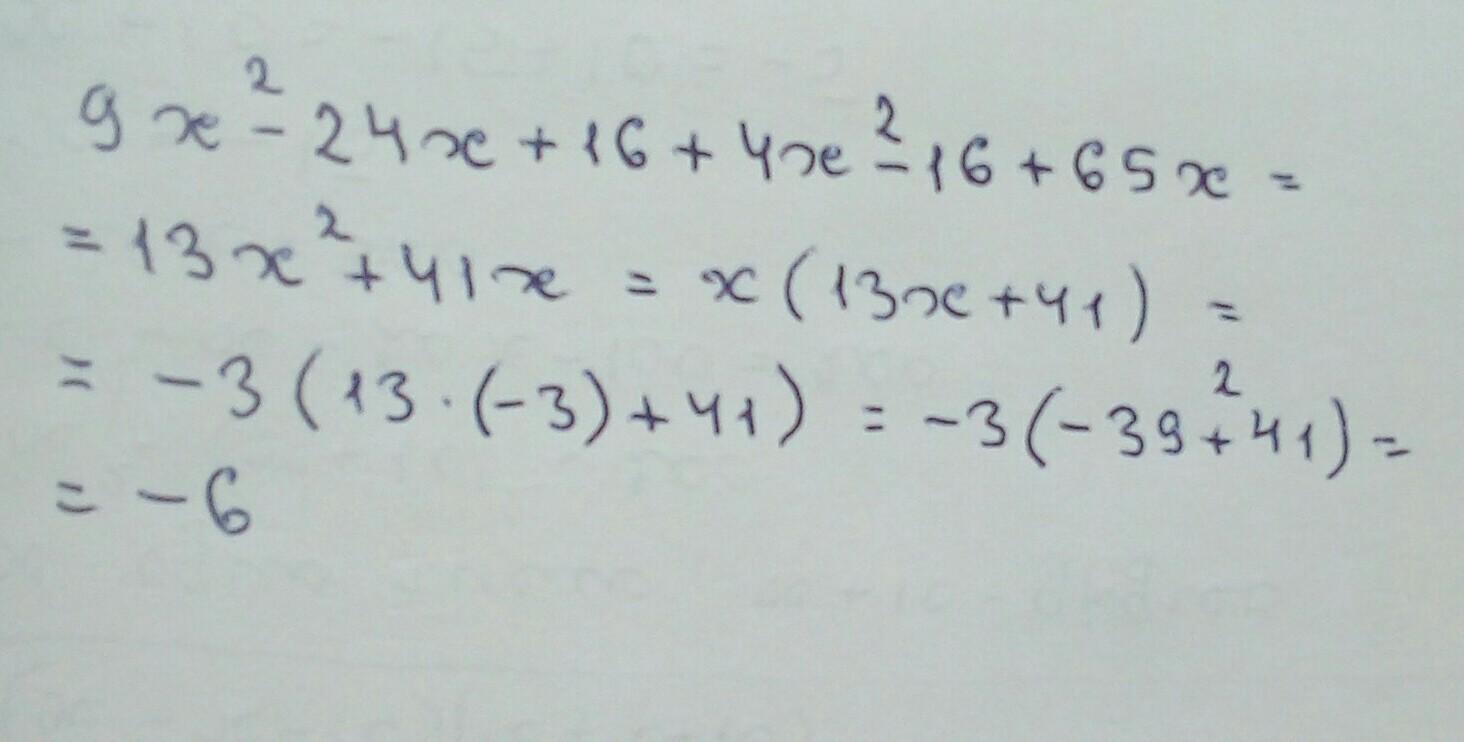 9x² - 24x + 16 + 4x² - 16 + 65x =
= 13x² + 41x = x(13x + 41) =
= -3(13 · (-3) + 41) = -3(-39 +² 41) =
= -6